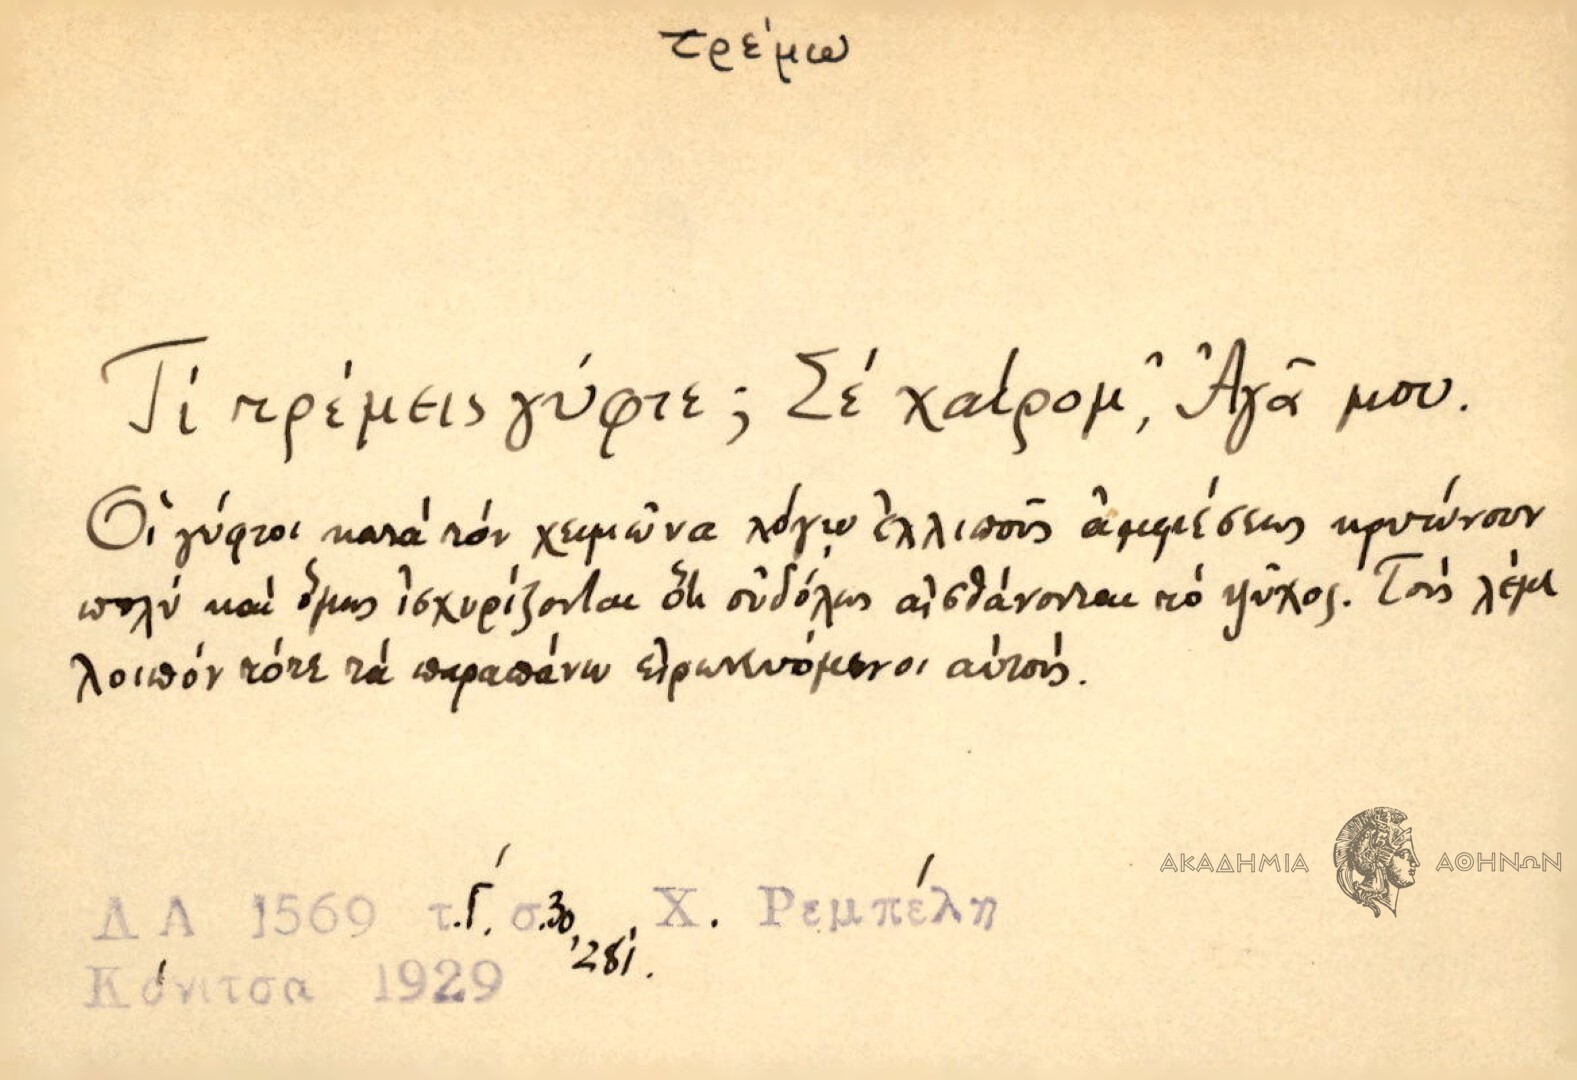 τρέμω
Τί τρέμεις γύφτε; Σέ χαίρομ', Ἀγᾶ μου.
Οἱ γύφτοι κατά τόν χειμῶνα λόγῳ ἐλλιποῦς ἀμφιέσεως κρυώνουν
πολύ καί ὅμως ἰσχυρίζονται ὅτι οὐδόλως αἰσθάνονται τό ψῦχος. Τούς λέμε
λοιπόν τότε τά παραπάνω εἰρωνευόμενοι αὐτούς.
ΑΚΑΔΗΜΙΑ ΑΘΗΝΩΝ
Λ Α 1569 τ.Γ'. σ.30, Χ. Ρεμπέλη
281.
Κόνιτσα 1929